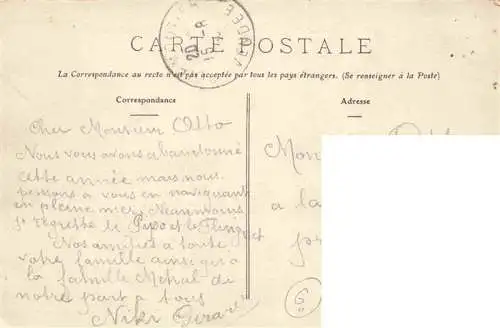 CARTE POSTALE
La Correspondance au recto n'est pas acceptée par tous les pays étrangers. (Se renseigner à la Poste)
Correspondance
Cher Monsieur Otto
Nous vous avons abandonné
cette année mais nous
pensons à vous en naviguant
en pleine mer. Néanmoins
je regrette le et le
Nos amitiés à toute
votre famille ainsi qu'à
la famille de
notre part à tous
Niki
Adresse
Mon
à la
VENDEE
20 -8
15
6